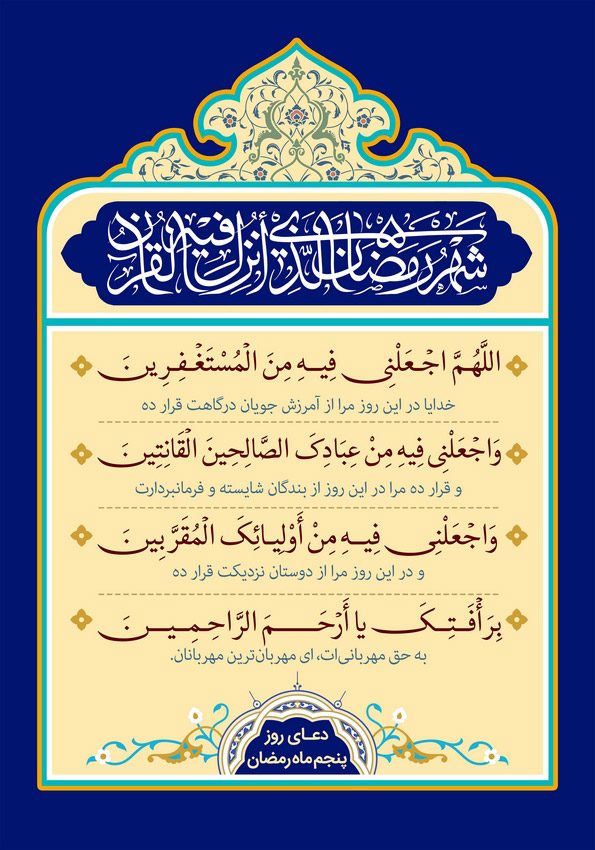 شَهْرُ رَمَضَانَ الَّذِي أُنْزِلَ فِيهِ الْقُرْآنُ
اللَّهُمَّ اجْعَلْنِی فِیهِ مِنَ الْمُسْتَغْفِرِینَ
خدایا در این روز مرا از آمرزش جویان درگاهت قرار ده
وَاجْعَلْنِی فِیهِ مِنْ عِبَادِکَ الصَّالِحِینَ الْقَانِتِینَ
و قرار ده مرا در این روز از بندگان شایسته و فرمانبردارت
وَاجْعَلْنِی فِیهِ مِنْ أَوْلِیائِکَ الْمُقَرَّبِینَ
و در این روز مرا از دوستان نزدیکت قرار ده
بِرَأْفَتِکَ یا أَرْحَمَ الرَّاحِمِینَ
به حق مهربانی‌ات، ای مهربان‌ترین مهربانان.
دعای روز
پنجم ماه رمضان